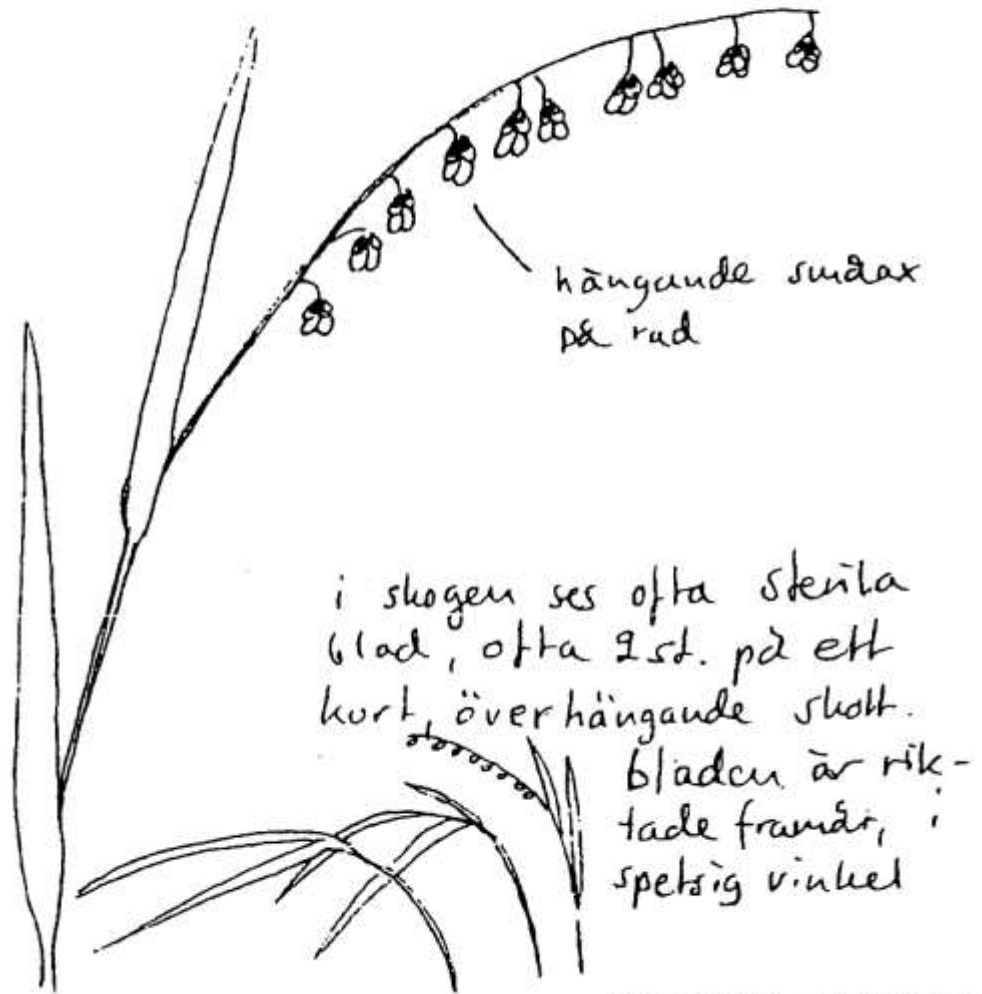 hängande småax
på rad
i skogen ses ofta sterila
blad, ofta 2 st. på ett
kort, överhängande skott.
bladen är rik-
tade framåt, i
spetsig vinkel